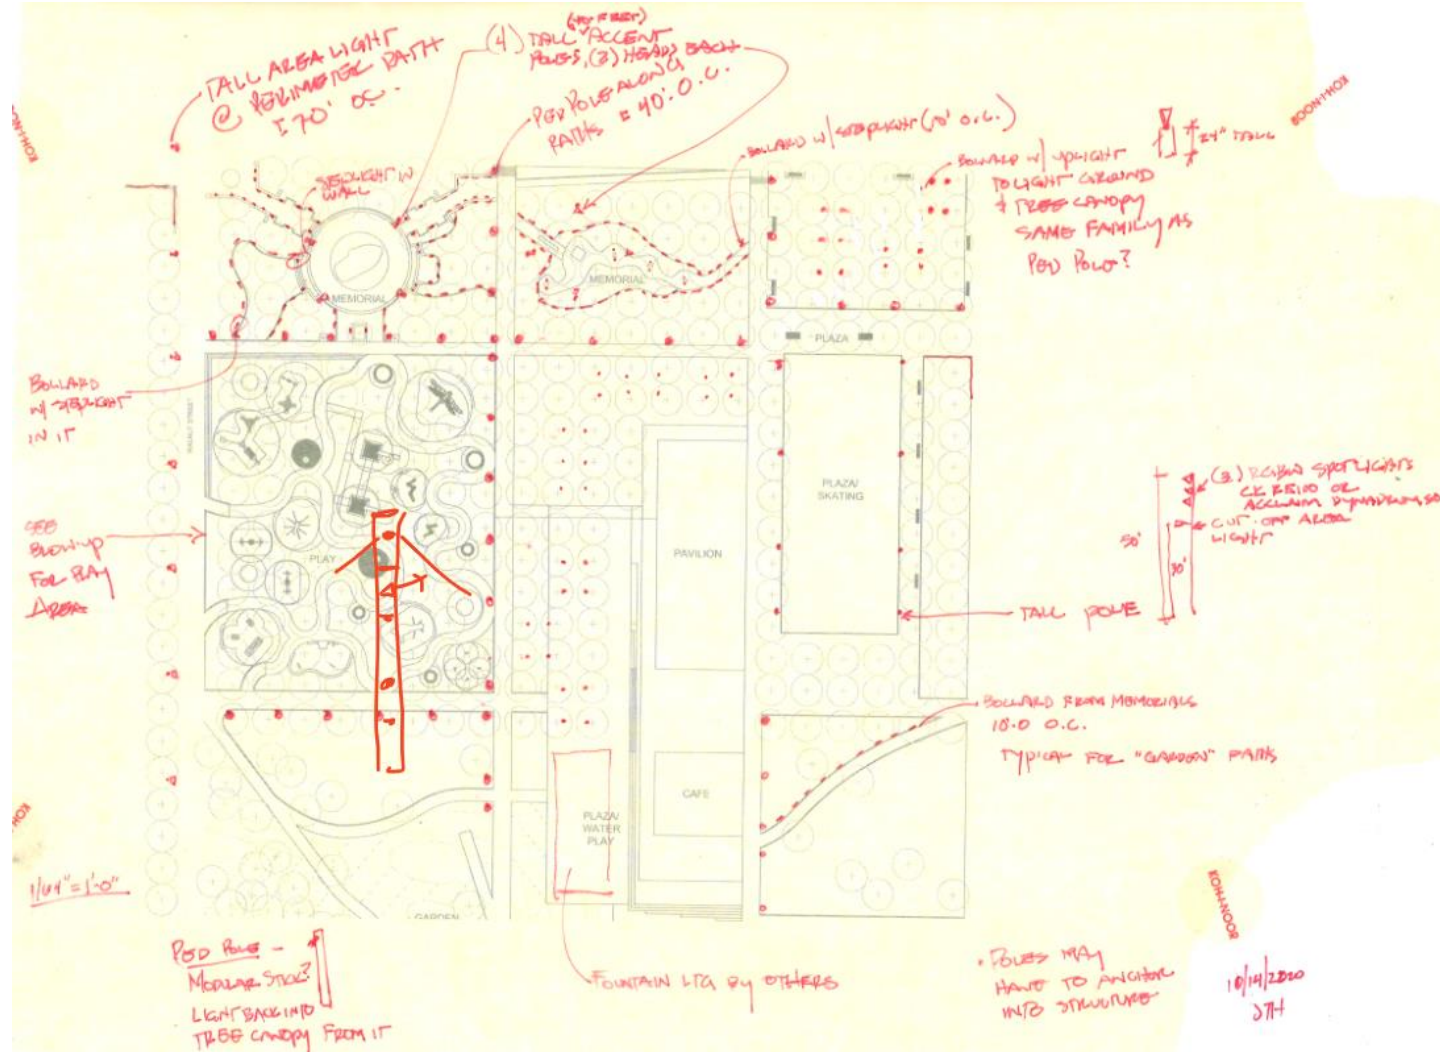 TALL AREA LIGHT
@ PERIMETER PATH
± 70' OC.
(4) TALL ACCENT
(40 FEET)
POLES, (3) HEADS EACH
PED POLE ALONG
PATHS ± 40'. O.C.
BOLLARD W/ STEPLIGHT (10' O.C.)
BOLLARD W/ UPLIGHT
TO LIGHT GROUND
& TREE CANOPY
SAME FAMILY AS
PED POLE?
24" TALL
KOH-I-NOOR
KOH-I-NOOR
STEPLIGHT IN
WALL
MEMORIAL
MEMORIAL
PLAZA
BOLLARD
W/ STEPLIGHT
IN IT
WALNUT STREET
PLAZA/
SKATING
PAVILION
PLAY
SEE
BLOW-UP
FOR PLAY
AREA
(3) SPOTLIGHTS
OR
ACCLAIM
CUT-OFF AREA
LIGHT
50'
30'
TALL POLE
BOLLARD FROM MEMORIALS
10'-0 O.C.
TYPICAL FOR "GARDEN" PATHS
CAFE
PLAZA/
WATER
PLAY
GARDEN
KOH
1/64" = 1'-0"
KOH-I-NOOR
PED POLE -
MODULAR STICK?
LIGHT BACK INTO
TREE CANOPY FROM IT
FOUNTAIN LTG BY OTHERS
• POLES MAY
HAVE TO ANCHOR
INTO STRUCTURE
10/14/2020
JTH